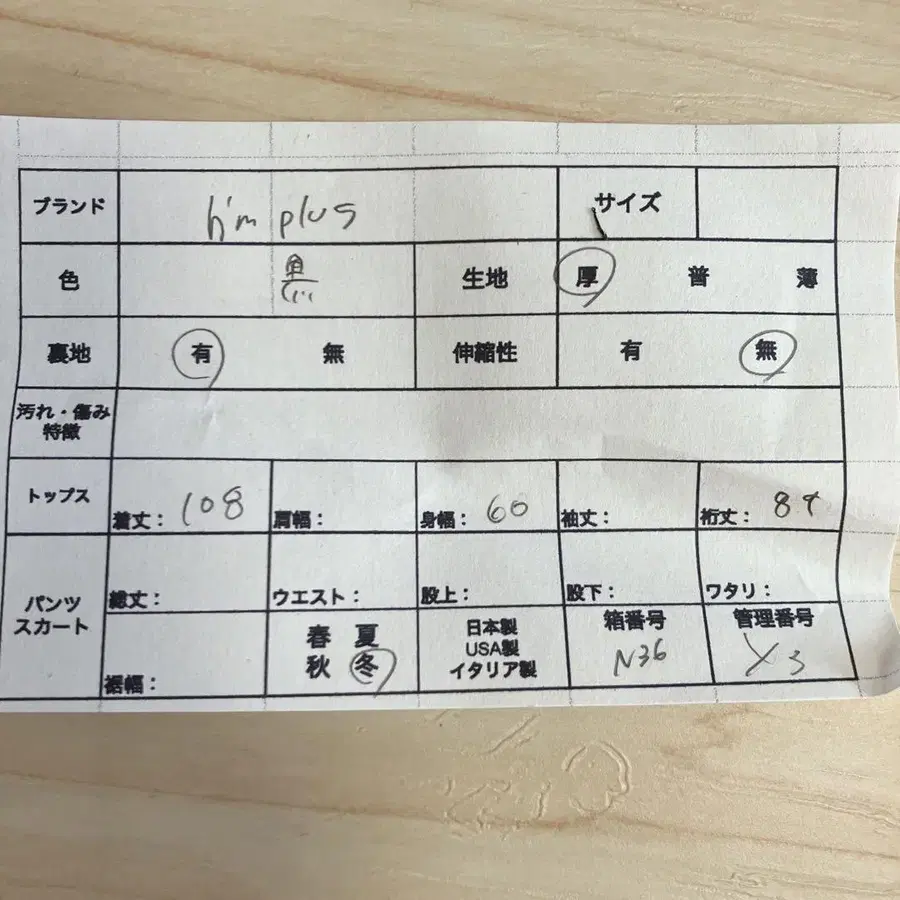 ブランド h'm plus サイズ
色 黒 生地 厚 普 薄
裏地 有 無 伸縮性 有 無
汚れ・傷み
特徴
トップス 着丈： 108 肩幅： 身幅： 60 袖丈： 裄丈：
パンツ
スカート
総丈： ウエスト： 股上： 股下： ワタリ：
裾幅：
春 夏
秋 冬
日本製
USA製
イタリア製
箱番号
N36
管理番号